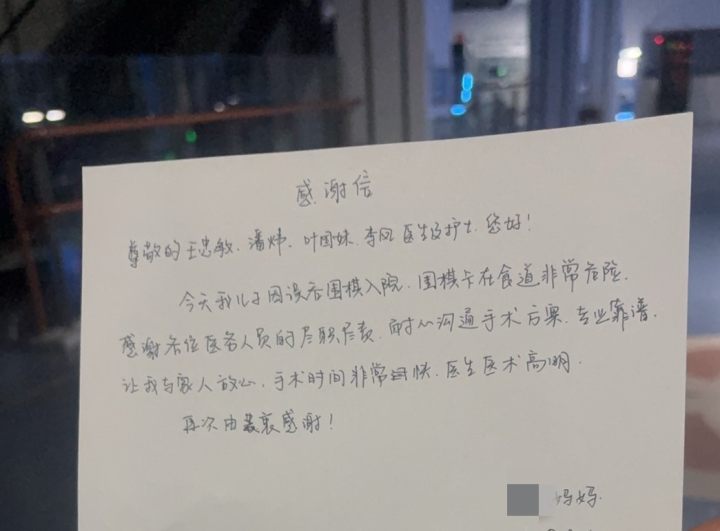 感谢信
尊敬的王忠敏、潘炜、叶国妹、李风医生及护士 您好！
今天我儿子因误吞围棋入院，围棋卡在食道非常危险，
感谢各位医务人员的尽职尽责，耐心沟通手术方案，专业靠谱，
让我与家人放心，手术时间非常快，医生医术高明。
再次由衷感谢！
妈妈